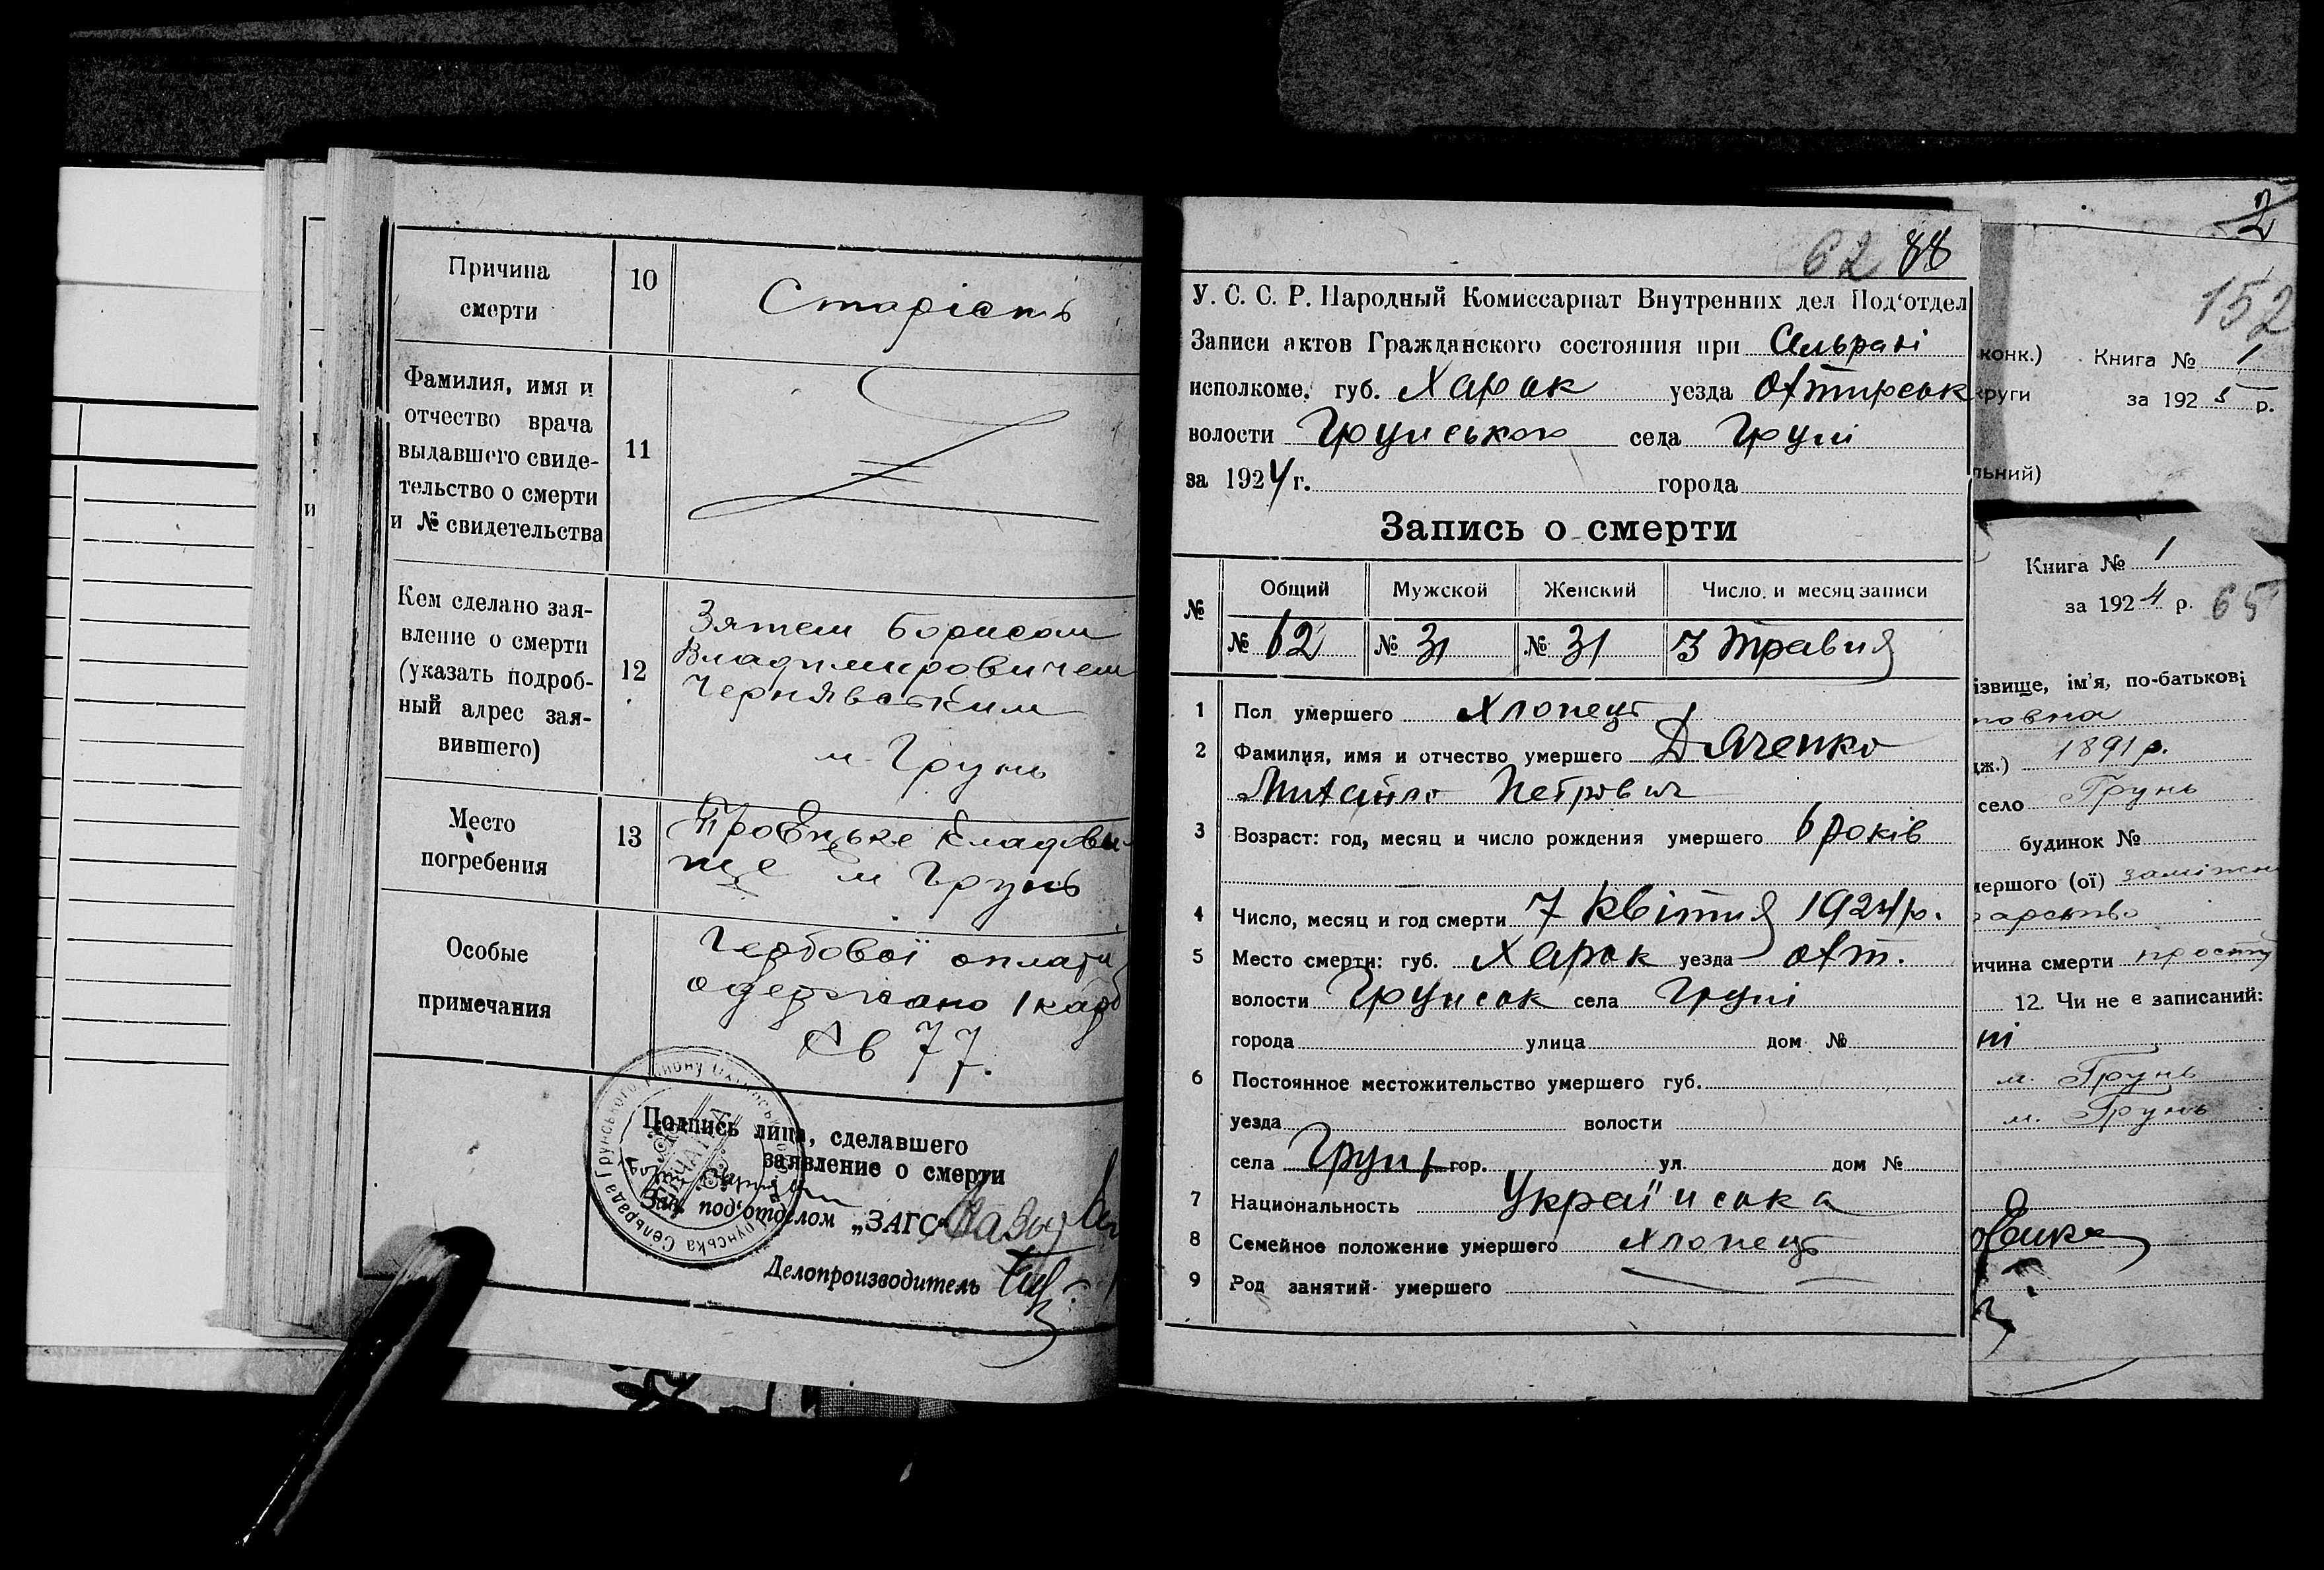 Причина
смерти
10
Старість
Фамилия, имя и
отчество врача
выдавшего свиде-
тельство о смерти
и № свидетельства
11
Кем сделано зая-
вление о смерти
(указать подроб-
ный адрес зая-
вившего)
12
Зятем Борисом
Владимировичем
Чернявським
м. Грунь
Место
погребения
13
Троецьке кладови-
ще м Грунь
Особые
примечания
Гербової оплати
одержано 1 карб
кв 77.
Подпись лица, сделавшего
заявление о смерти
Зав. под‘отделом „ЗАГС“
Делопроизводитель
62 88
У. С. С. Р. Народный Комиссариат Внутренних дел Под‘отдел
Записи актов Гражданского состояния при Сельраді
исполкоме. губ. Харьк уезда Охтирськ
волости Грунської села Груні
за 1924 г. города
Запись о смерти
№ Общий Мужской Женский Число и месяц записи
№ 62 № 31 № 31 3 травня
1 Пол умершего Хлопець
2 Фамилия, имя и отчество умершего Дяченко
Михайло Петрович
3 Возраст: год, месяц и число рождения умершего 6 років
4 Число, месяц и год смерти 7 квітня 1924 р.
5 Место смерти: губ. Харьк уезда Охт.
волости Грунськ села Груні
города улица дом №
6 Постоянное местожительство умершего губ.
уезда волости
села Груні гор. ул. дом №
7 Национальность Українська
8 Семейное положение умершего Хлопець
9 Род занятий умершего
2
152
конк.) Книга № 1
круги за 1925 р.
льний)
Книга № 1
за 1924 р. 65
ізвище, ім’я, по-батькові
повна
дж.) 1891 р.
село Грунь
будинок №
мершого (ої) заміжн
ичина смерти
12. Чи не є записаний:
ні
м. Грунь
м. Грунь